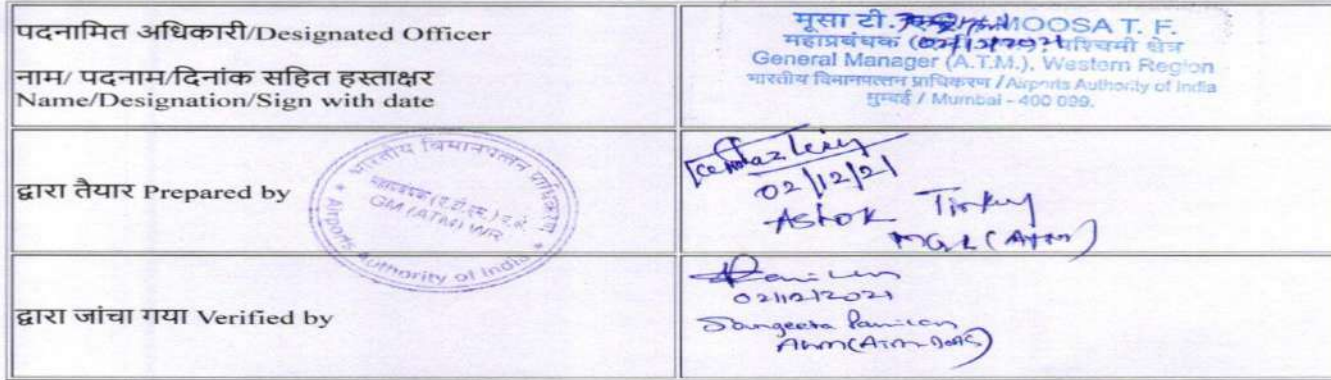 पदनामित अधिकारी/Designated Officer
नाम/ पदनाम/दिनांक सहित हस्ताक्षर
Name/Designation/Sign with date
मूसा टी. MOOSA T. F.
महाप्रबंधक पश्चिमी क्षेत्र
General Manager (A.T.M.), Western Region
भारतीय विमानपत्तन प्राधिकरण /Airports Authority of India
मुम्बई / Mumbai - 400 099.
द्वारा तैयार Prepared by
भारतीय विमानपत्तन प्राधिकरण
महाप्रबंधक (ए.टी.एम.) प.क्षे.
GM (ATM) WR
Airports Authority of India
02/12/21
Ashok Tirkey
MGR (ATM)
द्वारा जांचा गया Verified by
02/12/2021
Sangeeta